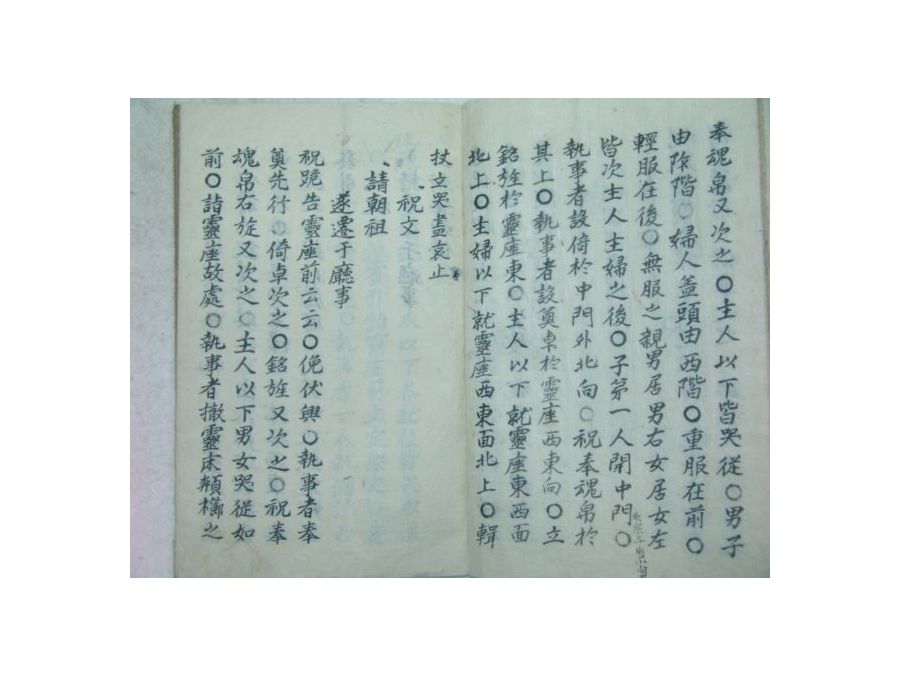 奉魂帛又次之〇主人以下皆哭從〇男子
由阼階〇婦人盖頭由西階〇重服在前〇
輕服在後〇無服之親男居男右女居女左
皆次主人主婦之後〇子弟一人開中門〇
執事者設倚於中門外北向〇祝奉魂帛於
其上〇執事者設奠卓於靈座西東向〇立
銘旌於靈座東〇主人以下就靈座東西面
北上〇主婦以下就靈座西東面北上〇輯
杖立哭盡哀止
祝文
請朝祖
遂遷于廳事
祝跪告靈座前云云〇俛伏興〇執事者奉
奠先行〇倚卓次之〇銘旌又次之〇祝奉
魂帛右旋又次之〇主人以下男女哭從如
前〇詣靈座故處〇執事者撤靈床頮櫛之